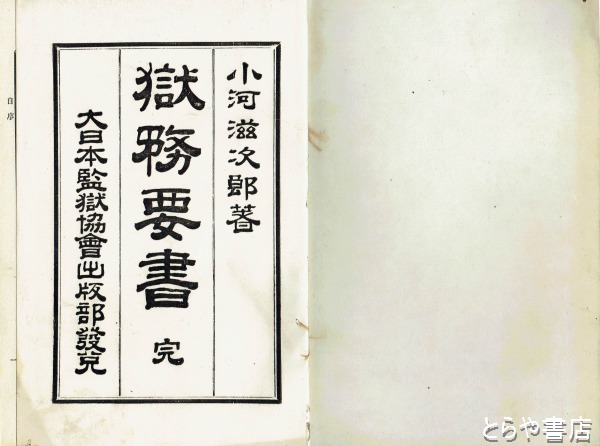 小河滋次郎著
獄務要書 完
大日本監獄協會出版部發兌
自序
とらや書店